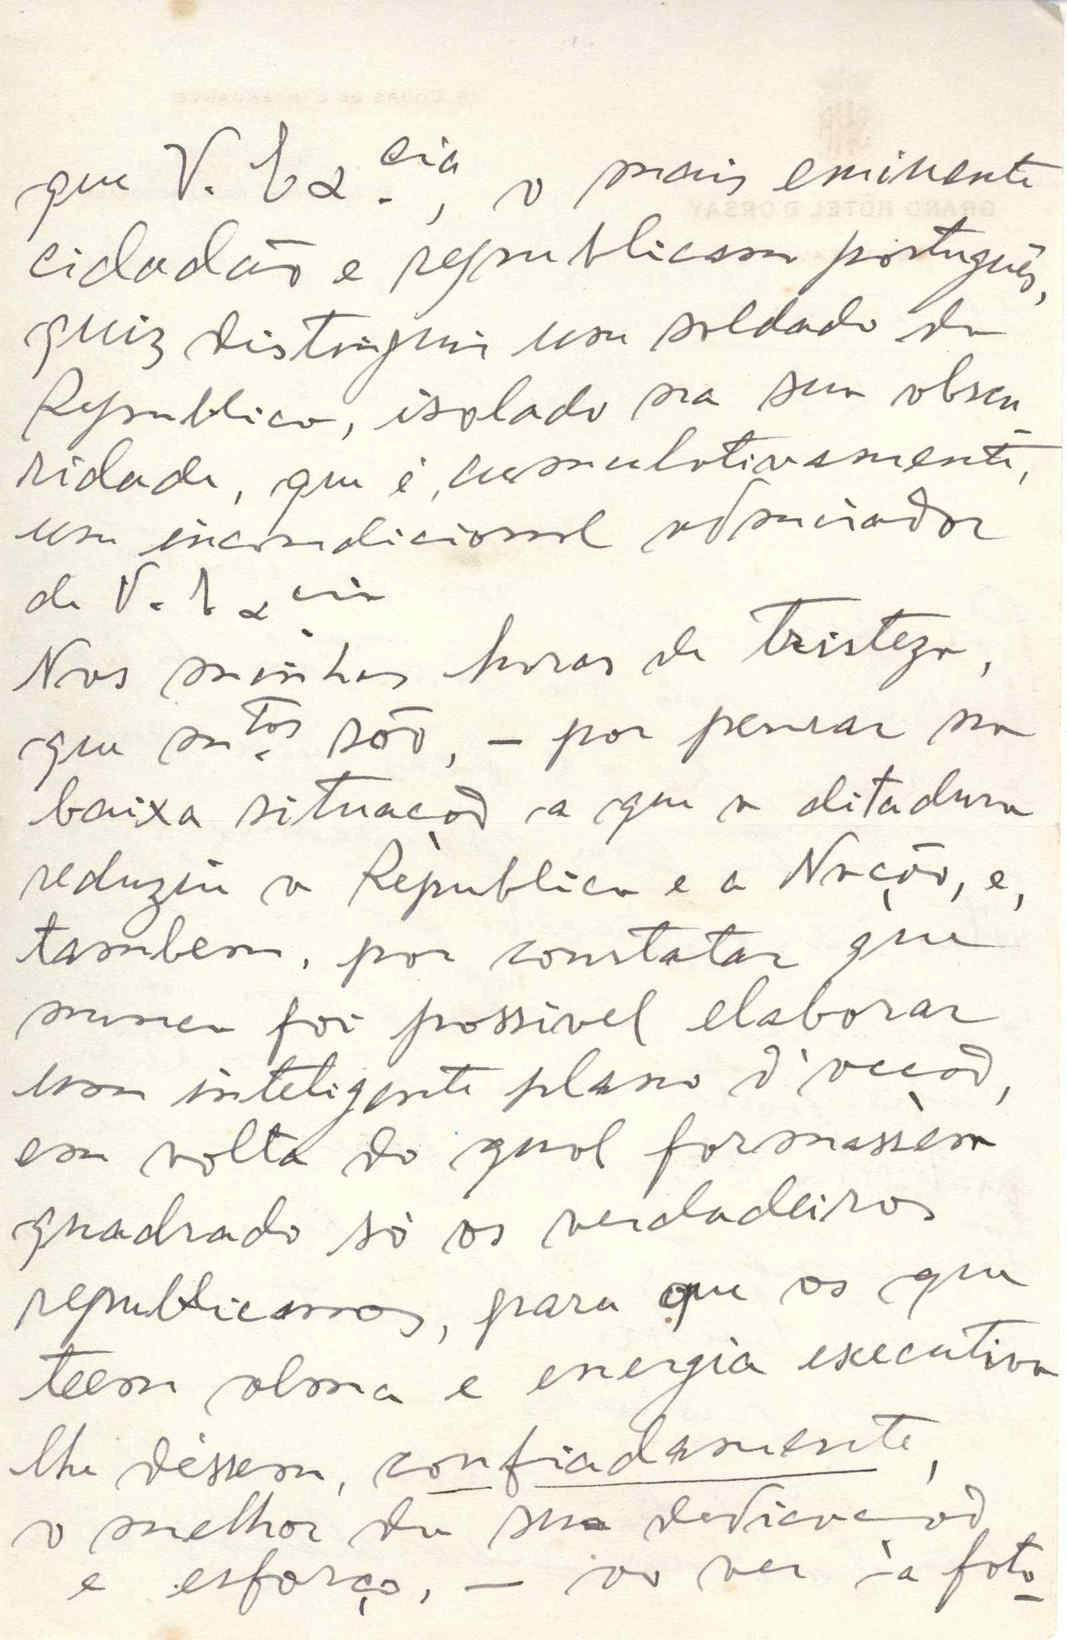 que V. Ex.cia, o mais eminente
cidadão e republicano português,
quiz distinguir um soldado da
Republica, isolado na sua obscu
ridade, que é, cumulativamente,
um incondicional admirador
de V. Excia
Nas minhas horas de tristeza,
que m.tos são, – por pensar na
baixa situação a que a ditadura
reduziu a Républica e a Nação, e,
tambem, por constatar que
nunca foi possivel elaborar
um inteligente plano d'acção,
em volta do qual formassem
quadrado só os verdadeiros
republicanos, para que os que
teem alma e energia executiva
lhe déssem, confiadamente,
o melhor da sua dedicação
e esforço, – ao ver a foto-
GRAND HÔTEL D'ORSAY